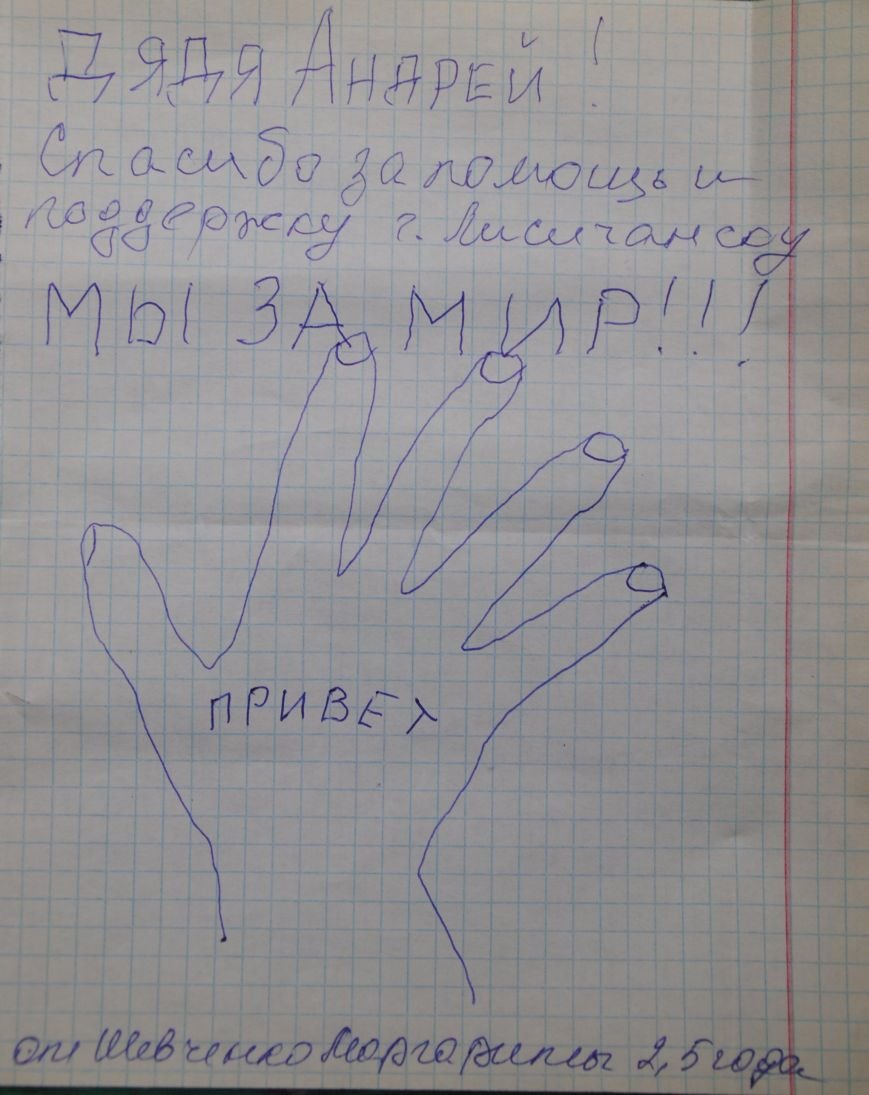 Дядя Андрей!
Спасибо за помощь и
поддержку г. Лисичанску
МЫ ЗА МИР!!!
ПРИВЕТ
от Шевченко Маргариты 2,5 года